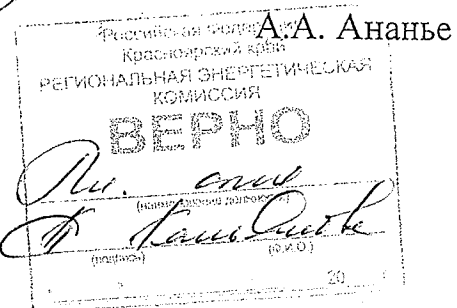 А.А. Ананье
Российская Федерация
Красноярский край
РЕГИОНАЛЬНАЯ ЭНЕРГЕТИЧЕСКАЯ
КОМИССИЯ
ВЕРНО
(наименование должности)
(подпись) (Ф.И.О.)
20